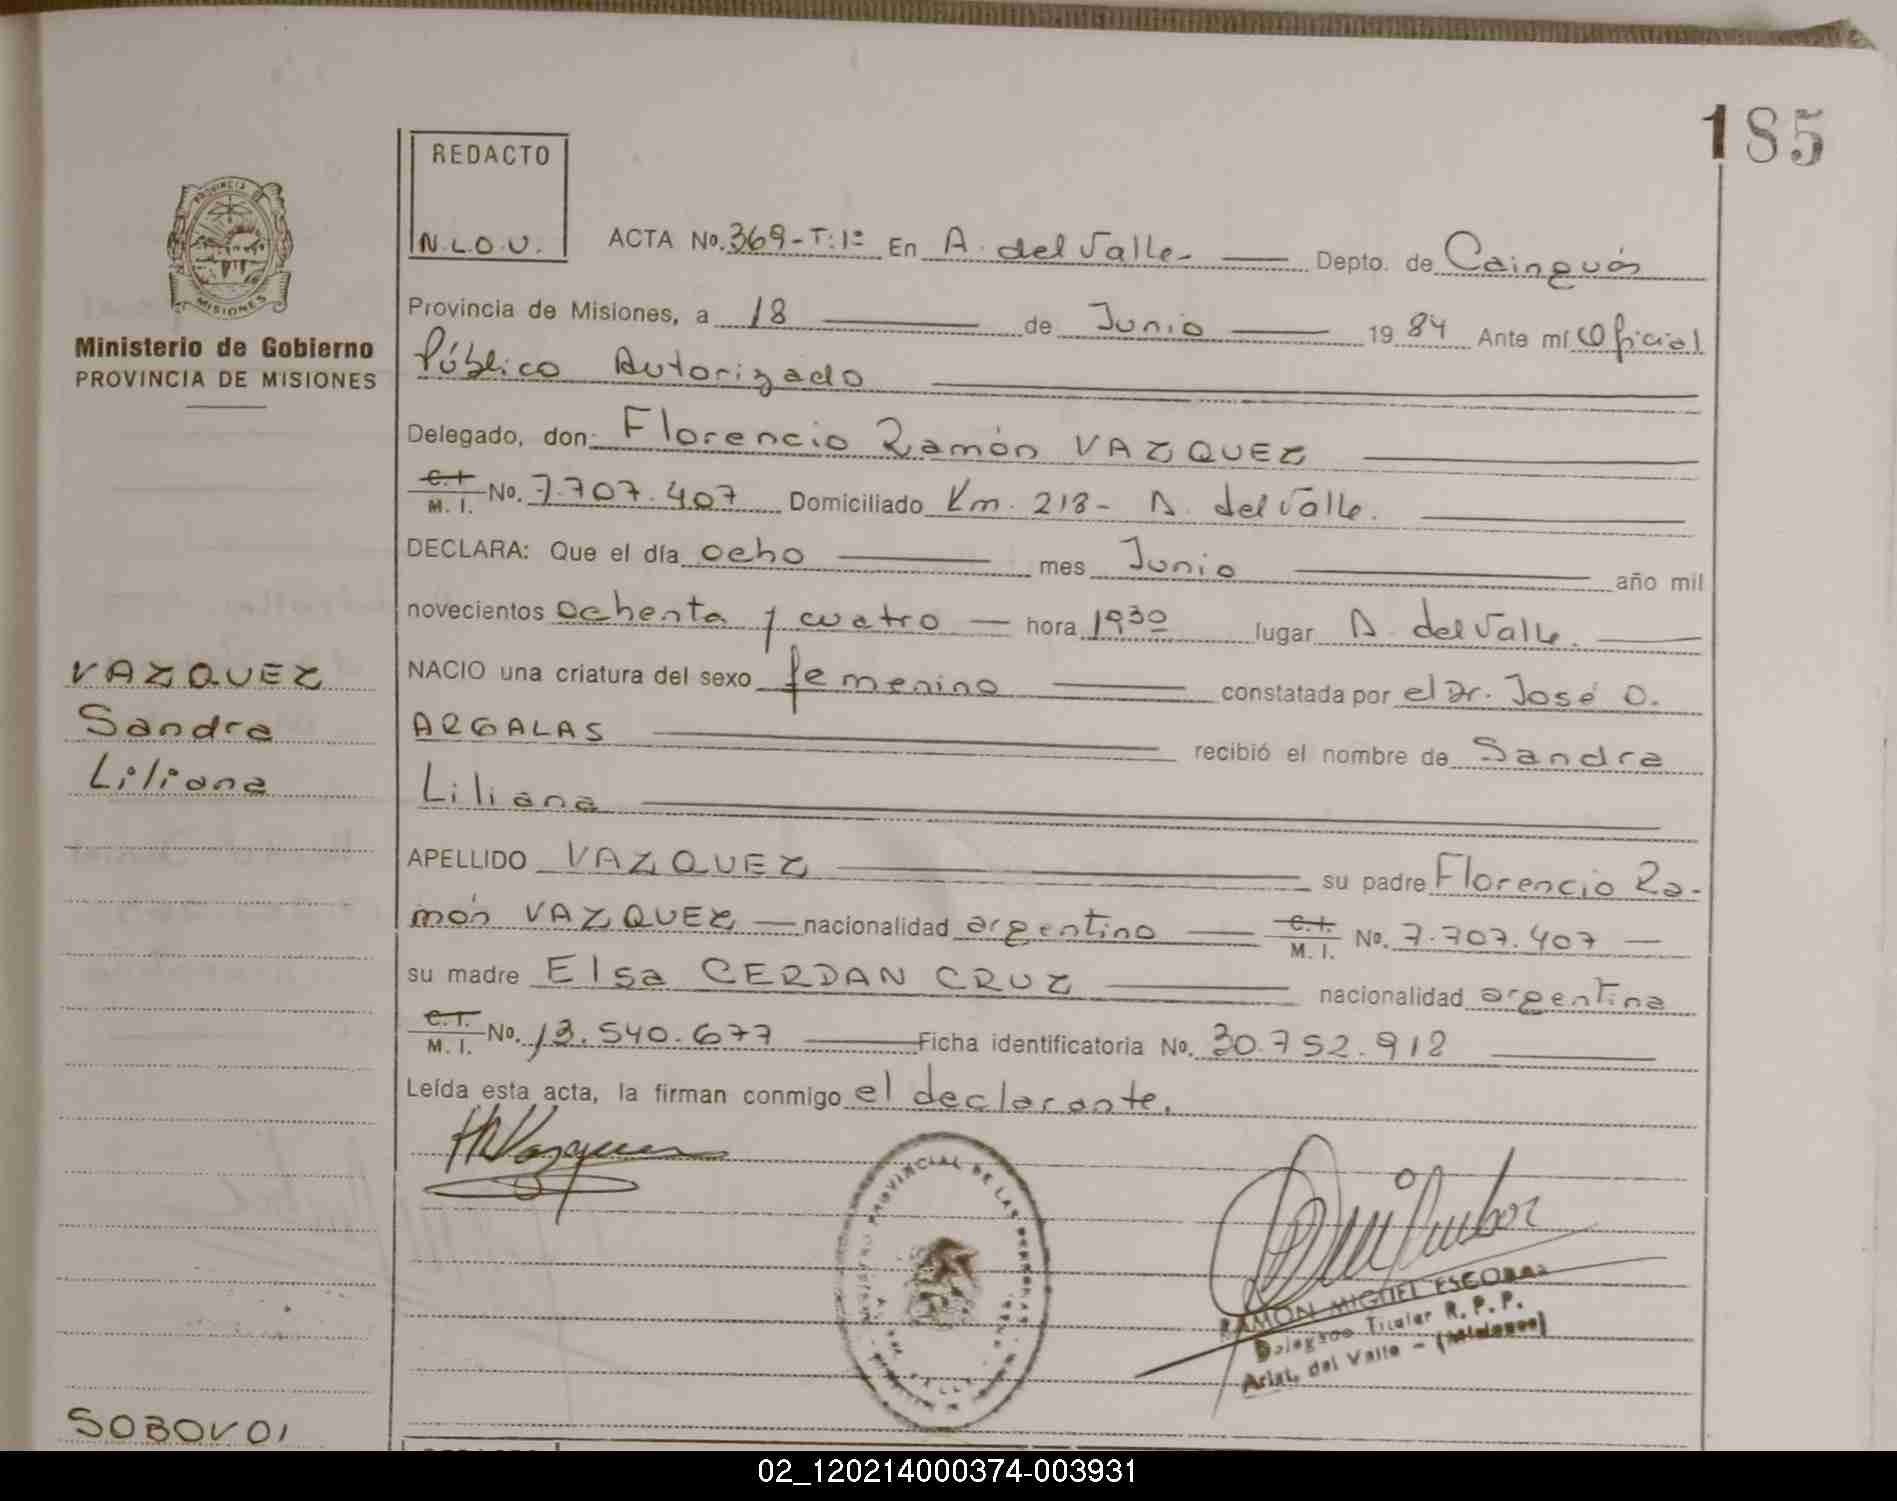 185
REDACTO
N.L.O.V.
PROVINCIA DE
MISIONES
Ministerio de Gobierno
PROVINCIA DE MISIONES
ACTA No. 369-T:1º En A. del Valle- Depto. de Cainguás
Provincia de Misiones, a 18 de Junio 1984 Ante mí Oficial
Público Autorizado
Delegado, don: Florencio Ramón VAZQUEZ
C.I. M. I. No. 7.707.407 Domiciliado Km. 218- A. del Valle.
DECLARA: Que el día ocho mes Junio año mil
novecientos ochenta y cuatro hora 1930 lugar A. del Valle.
NACIO una criatura del sexo femenino constatada por el Dr. José O.
ARGALAS recibió el nombre de Sandra
Liliana
APELLIDO VAZQUEZ su padre Florencio Ra-
món VAZQUEZ nacionalidad argentino C.I. M. I. No. 7.707.407
su madre Elsa CERDAN CRUZ nacionalidad argentina
C.I. M. I. No. 13.540.677 Ficha identificatoria No. 30.752.918
Leída esta acta, la firman conmigo el declarante.
VAZQUEZ
Sandra
Liliana
PROVINCIAL DE LAS PERSONAS
RAMON MIGUEL ESCOBAR
Delegado Titular R. P. P.
Arist. del Valle - (Misiones)
02_120214000374-003931